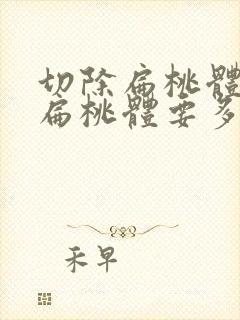 切除扁桃體
扁桃體要多
禾早